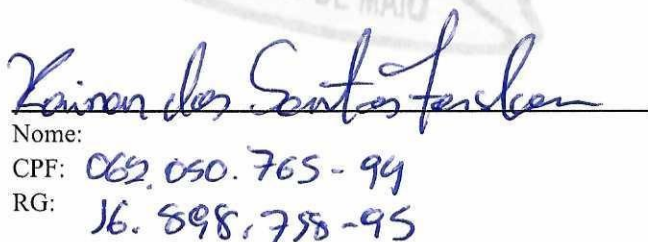 DE MAIO
Kainan dos Santos
Nome:
CPF: 062.050.765-94
RG: 16.898.758-95